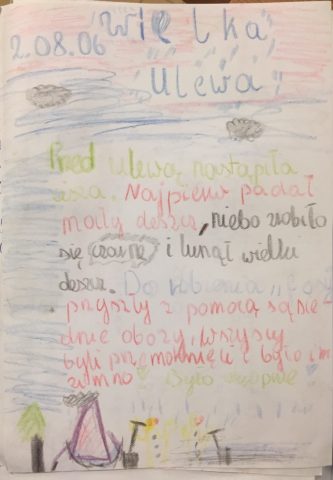 2.08.06
Wielka
Ulewa
Przed ulewą nastąpiła
cisza. Najpierw padał
mały deszcz, niebo zrobiło
się czarne i lunął wielki
deszcz. Do robienia „fosy"
przyszły z pomocą sąsie-
dnie obozy, wszyscy
byli przemoknięci i było im
zimno! Było